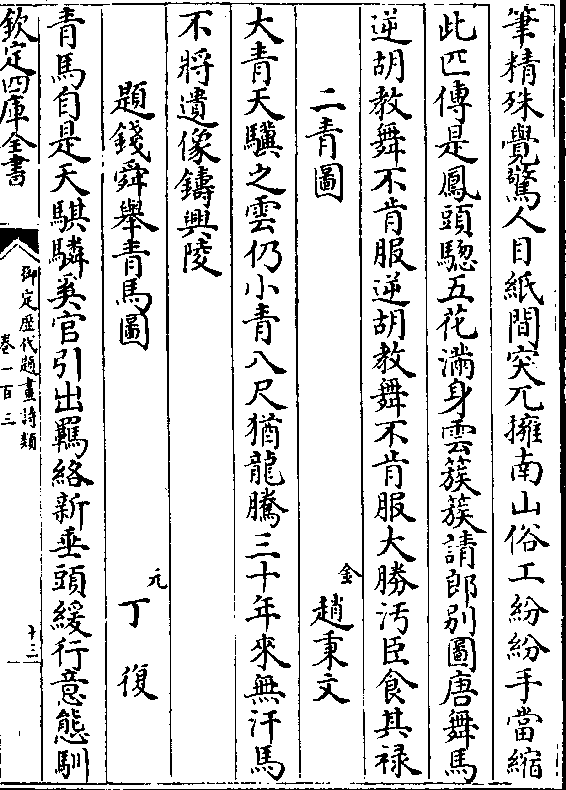 筆精殊覺驚人目紙間突兀擁南山俗工紛紛手當縮
此匹傳是鳳頭驄五花滿身雲簇簇請郎别圖唐舞馬
逆胡教舞不肯服逆胡教舞不肯服大勝汚臣食其禄
二青圖
金
趙秉文
大青天驥之雲仍小青八尺猶龍騰三十年來無汗馬
不將遺像鑄興陵
題錢舜舉青馬圖
元
丁復
青馬自是天騏驎奚官引出羈絡新垂頭緩行意態馴
欽定四庫全書
御定歴代題畫詩類
卷一百三
十三